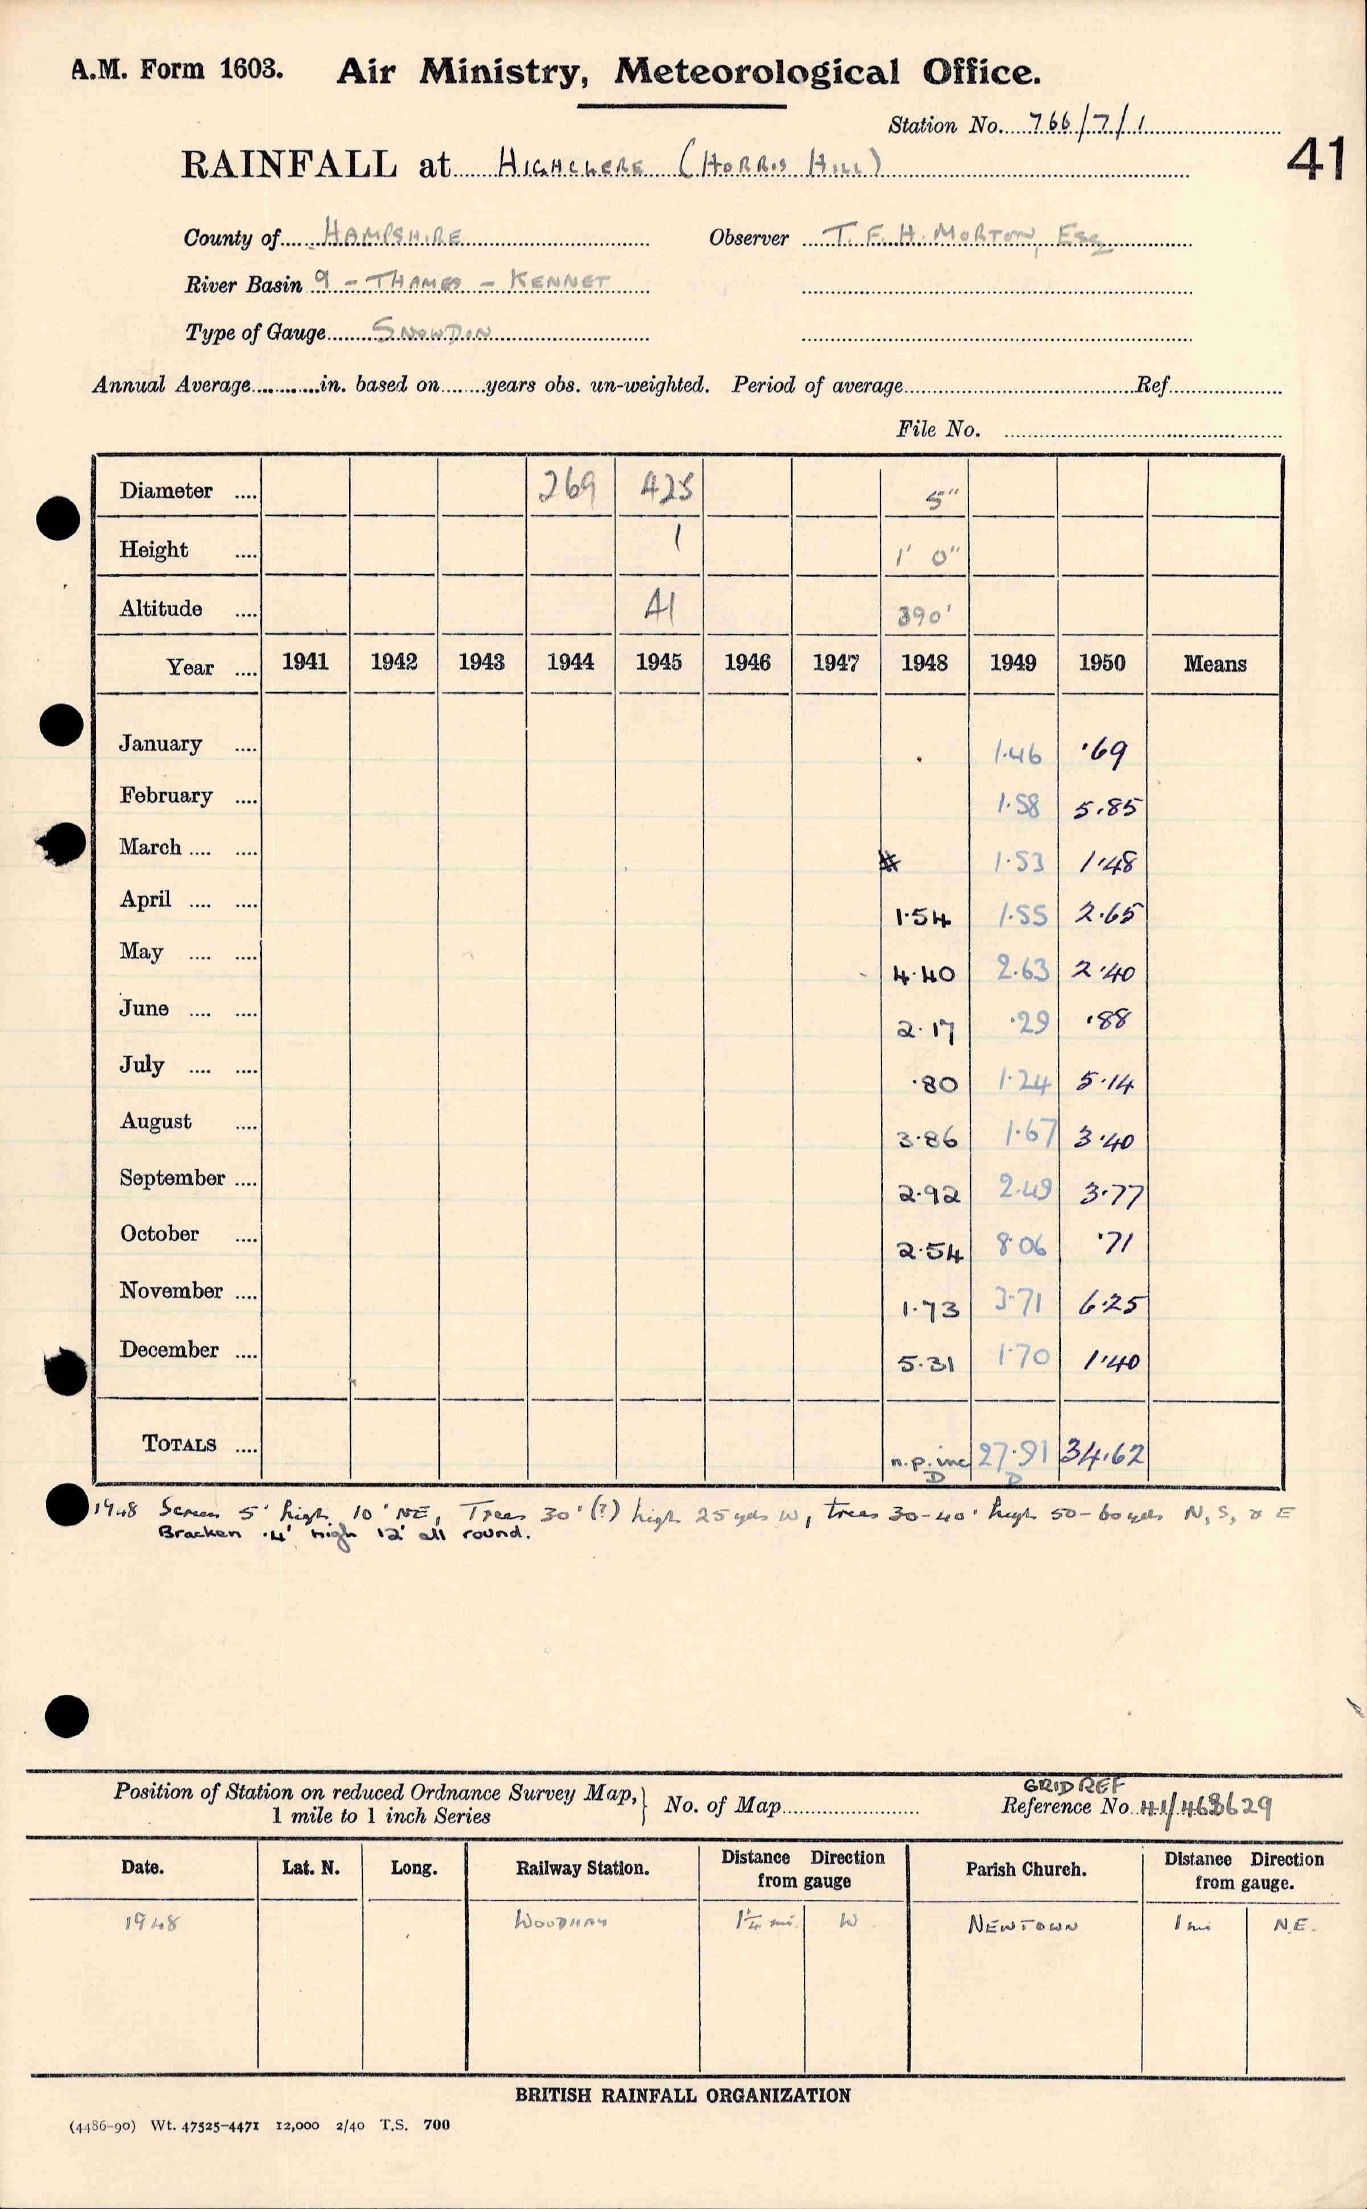 A.M. Form 1603. Air Ministry, Meteorological Office.
Station No. 766/7/1
41
RAINFALL at HIGHCLERE (HORRIS HILL)
County of HAMPSHIRE Observer T. F. H. MORTON, ESQ
River Basin 9 - THAMES - KENNET
Type of Gauge SNOWDON
Annual Average in. based on years obs. un-weighted. Period of average Ref
File No.
Diameter 269 425 5"
Height 1 1' 0"
Altitude A1 390'
Year 1941 1942 1943 1944 1945 1946 1947 1948 1949 1950 Means
January 1.46 .69
February 1.58 5.85
March 1.53 1.48
April 1.54 1.55 2.65
May 4.40 2.63 2.40
June 2.17 .29 .88
July .80 1.24 5.14
August 3.86 1.67 3.40
September 2.92 2.49 3.77
October 2.54 8.06 .71
November 1.73 3.71 6.25
December 5.31 1.70 1.40
TOTALS n.p. inc 27.91 34.62
D D
1948 Screen 5' high 10' NE, Trees 30' (?) high 25 yds W, trees 30-40' high 50-60 yds N, S, & E
Bracken 4' high 12' all round.
Position of Station on reduced Ordnance Survey Map, 1 mile to 1 inch Series } No. of Map GRID REF Reference No. 41/463629
Date. Lat. N. Long. Railway Station. Distance Direction from gauge Parish Church. Distance Direction from gauge.
1948 WOODHAY 1¼ mi. W NEWTOWN 1 mi N.E.
BRITISH RAINFALL ORGANIZATION
(4486-90) Wt. 47525-4471 12,000 2/40 T.S. 700